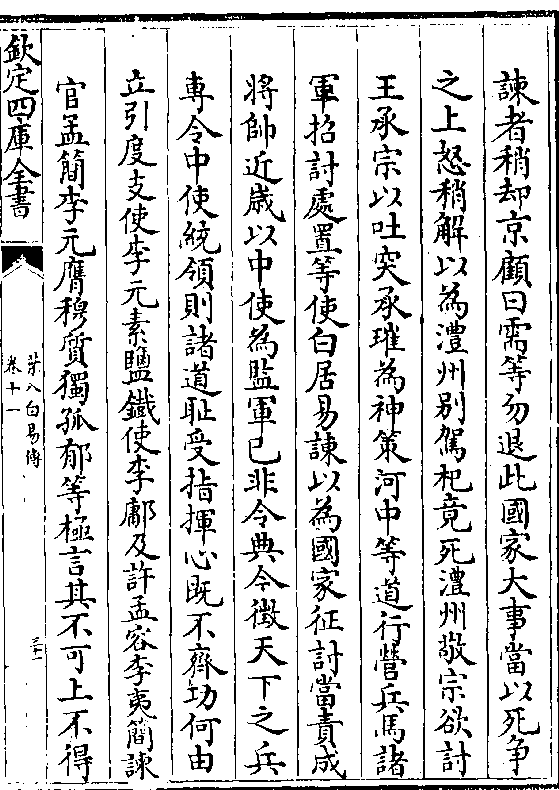 諫者稍却京顧曰需等勿退此國家大事當以死争
之上怒稍解以為澧州别駕杞竟死澧州敬宗欲討
王承宗以吐突承璀為神策河中等道行營兵馬諸
軍招討處置等使白居易諫以為國家征討當責成
將帥近歳以中使為監軍已非令典今徴天下之兵
専令中使統領則諸道耻受指揮心既不齊功何由
立引度支使李元素鹽鐵使李鄘及許孟容李夷簡諫
官孟簡李元膺穆質獨孤郁等極言其不可上不得
欽定四庫全書
卷十一